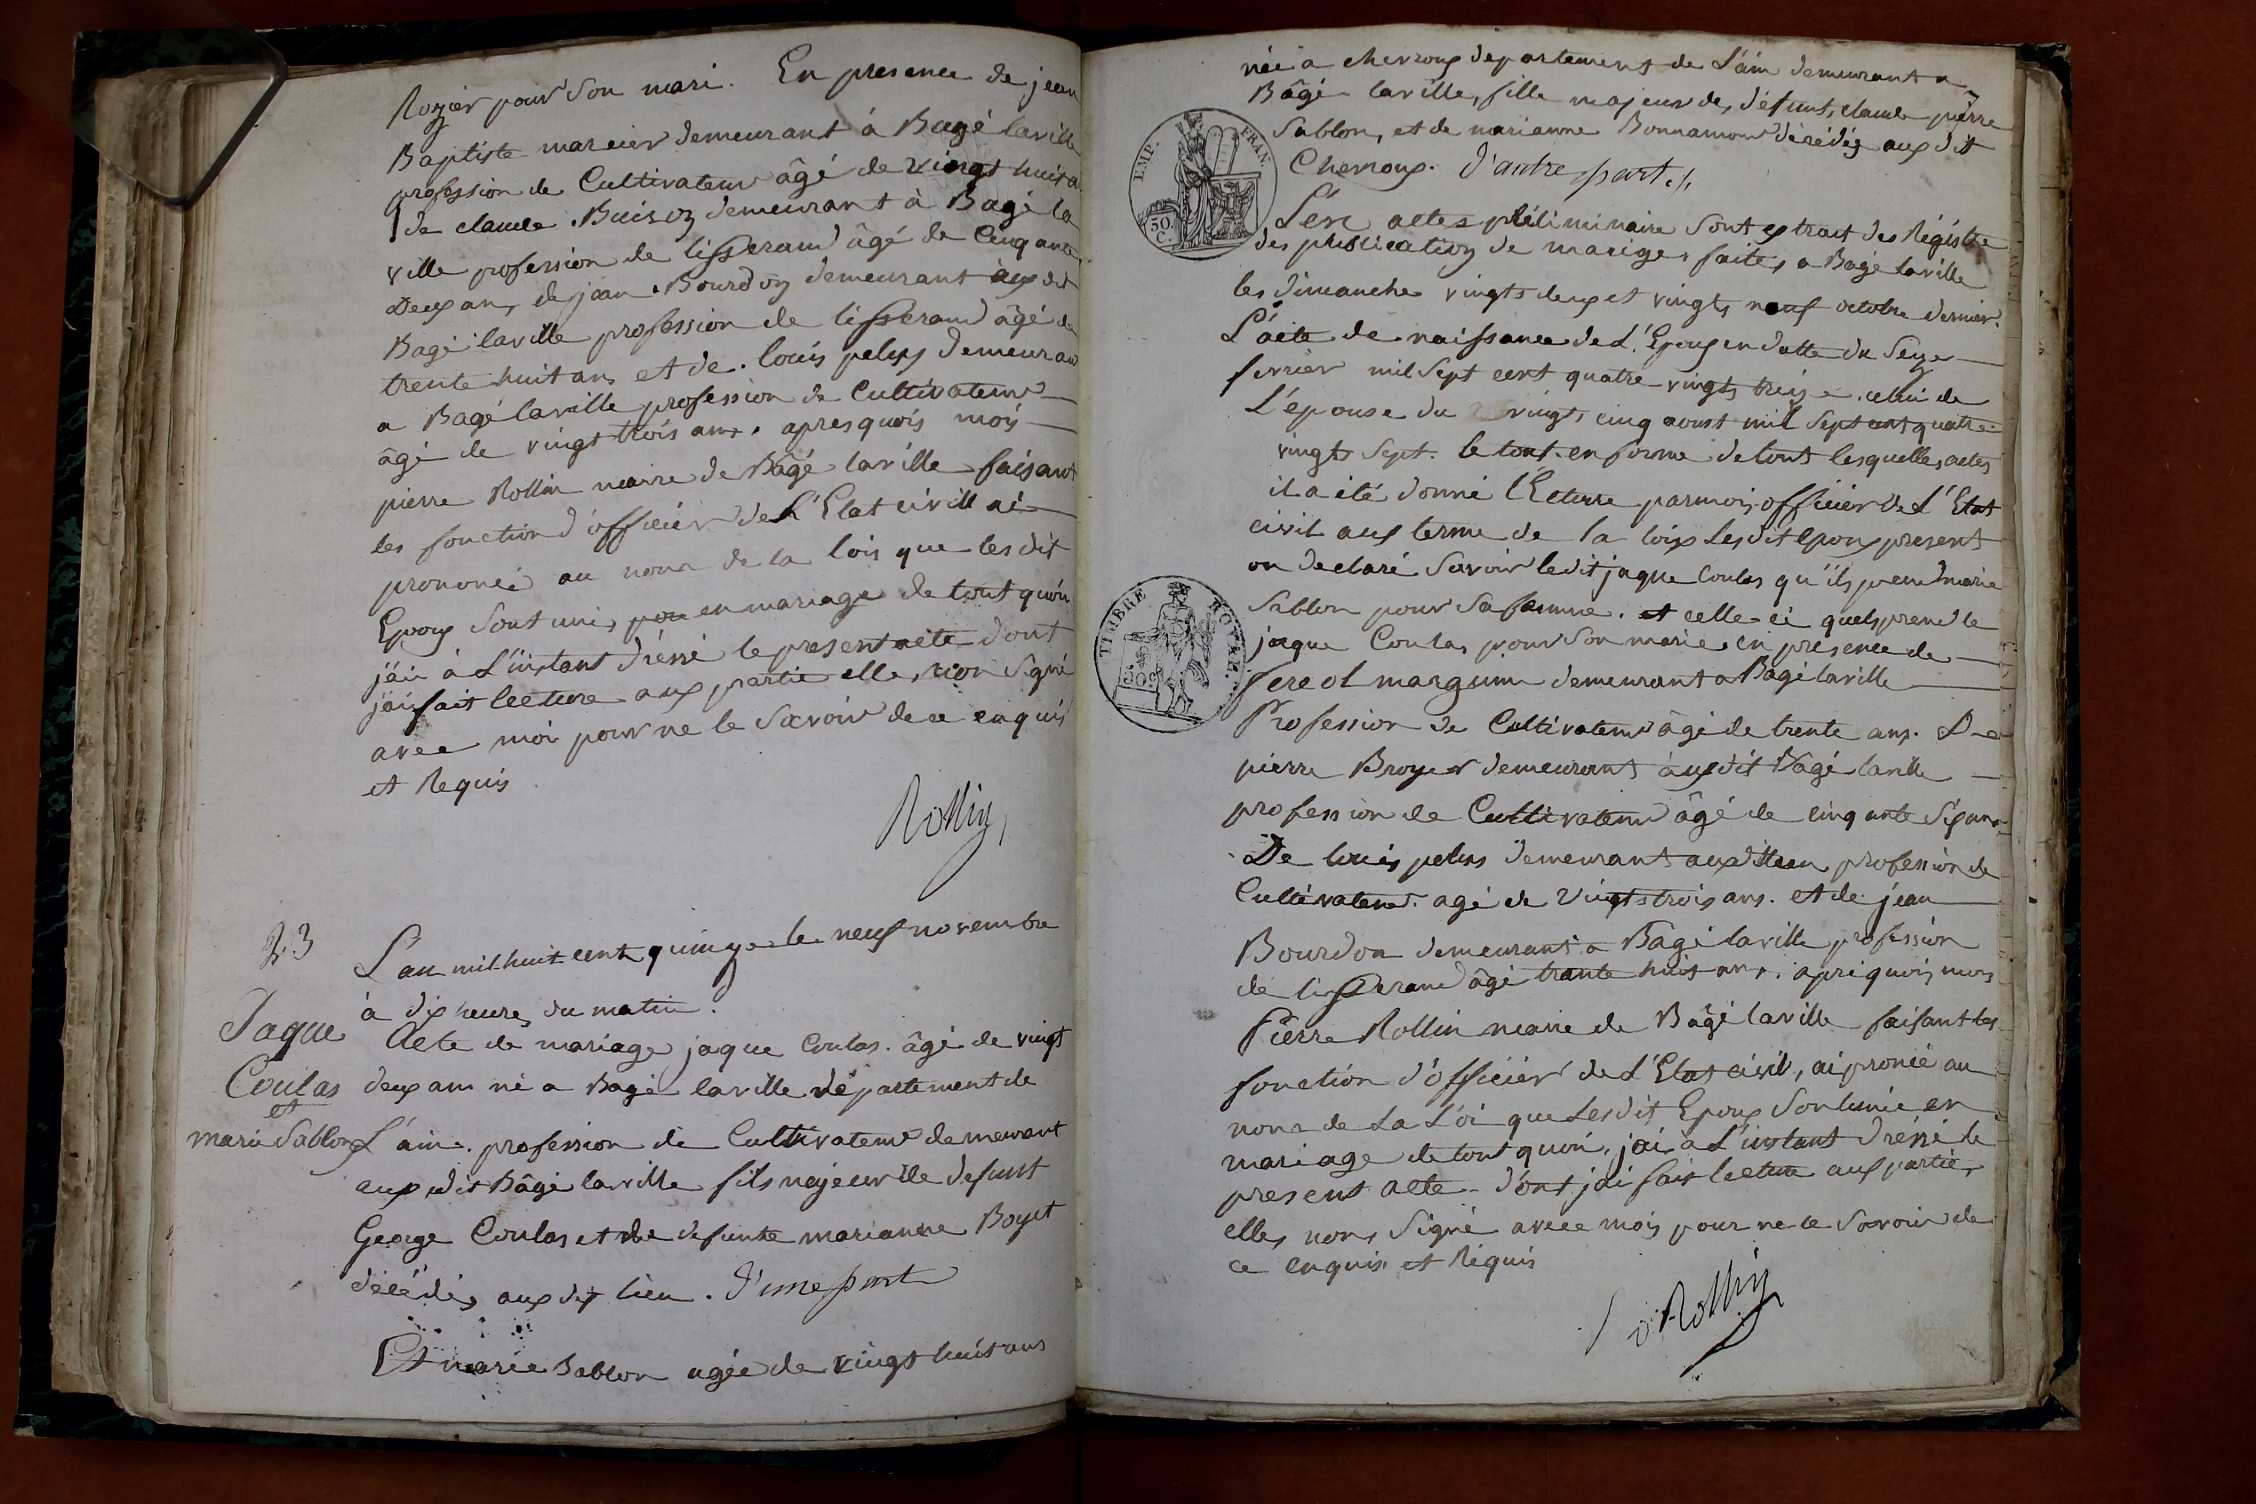 Rozier pour Son mari. En presence de jean
Baptiste marcier demeurant à Bagé laville
profession de Cultivateur âgé de vingt huit a
de claude Buiron demeurant à Bagé la
ville profession de tisserand âgé de Cinquante
Deux ans, de jean Bourdon demeurant aux dit
Bagé laville profession de tisserand âgé de
trente huit ans et de louis pelus demeurant
a Bagé laville profession de Cultivateur
âgé de vingt trois ans. apres quois mois
pierre Rollin maire de Bâgé laville faisant
les fonction d'officier de L'Etat civill ai
prononcé au nom de la lois que les dit
Epoux Sont unis en mariage de tout quoi
j'ai à L'instant dréssé le present acte dont
j'ai fait lecture aux partie elles non Signé
avec moi pour ne le Savoir de ce enquis
et Requis
Rollin
23
L'an mil huit cent quinze le neuf novembre
à dix heures du matin.
Jaque
Coulas
et
marie Sablon
Acte de mariage jaque Coulas. âgé de vingt
deux ans né a Bagé laville département de
L'ain. profession de Cultivateur demeurant
aux dit Bâgé laville fils majeur de defunt
George Coulas et de defunte marianne Boyet
décédés aux dit lieu. d'une part
Et marie Sablon agée de vingt huit ans
née a chevroux departement de L'ain demeurant a
Bâgé laville, fille majeur de défunt, claude pierre
Sablon, et de marianne Bonnamour décédés aux dit
Chevroux. d'autre part./.
EMP. FRAN.
50 C.
Les actes préliminaire Sont extrait des Régistre
des publication de mariage faites a Bagé laville
les dimanche vingts deux et vingts neuf octobre dernier.
L'acte de naissance de L'Epoux en datte du Seize
fevrier mil Sept cent quatre vingts treize. celui de
L'épouse du vingt cinq aoust mil Sept cent quatre
vingts Sept. le tout en forme de tout lesquelles actes
il a été donné lecture par moi officier de L'Etat
civil aux terme de la loix Lesdit Epoux present
on declaré Savoir ledit jaque Coulas qu'ils prend marie
Sablon pour Sa femme. et celle ci quels prend le
jaque Coulas pour Son marie. en presence de
TIMBRE ROYAL
50c
fereol mangum demeurant a Bagé laville
Profession de Cultivateur âgé de trente ans. De
pierre Broyer demeurant aux dit Bagé laville
profession de Cultivateur âgé de cinquante Six ans
De louis pelus demeurant aux dit lieu profession de
Cultivateur. agé de vingts trois ans. et de jean
Bourdon demeurant a Bâgé laville profession
de tisserand âgé trante huit ans. apré quois mois
Pierre Rollin maire de Bâgé laville faisant les
fonction d'officier de L'Etat civil, ai proncé au
nom de La Loi que Lesdit Epoux Sont unie en
mariage de tout quoi, j'ai à L'instant dréssé le
present acte. dont j'ai fait lecture aux parties
elles nons Signé avec mois pour ne le Savoir de
ce enquis et Réquis
Rollin